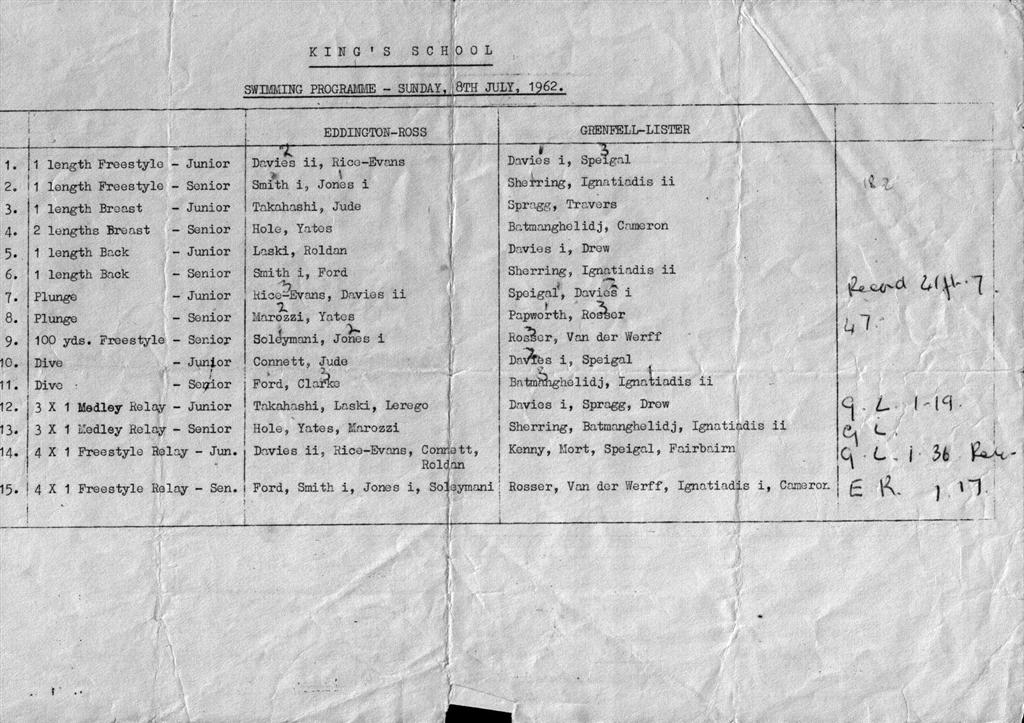 KING'S SCHOOL
SWIMMING PROGRAMME - SUNDAY, 8TH JULY, 1962.
EDDINGTON-ROSS GRENFELL-LISTER
1. 1 length Freestyle - Junior Davies ii, Rice-Evans Davies i, Speigal
2. 1 length Freestyle - Senior Smith i, Jones i Sherring, Ignatiadis ii
3. 1 length Breast - Junior Takahashi, Jude Spragg, Travers
4. 2 lengths Breast - Senior Hole, Yates Batmanghelidj, Cameron
5. 1 length Back - Junior Laski, Roldan Davies i, Drew
6. 1 length Back - Senior Smith i, Ford Sherring, Ignatiadis ii
7. Plunge - Junior Rice-Evans, Davies ii Speigal, Davies i Record 41ft. 7.
8. Plunge - Senior Marozzi, Yates Papworth, Rosser 47.
9. 100 yds. Freestyle - Senior Soleymani, Jones i Rosser, Van der Werff
10. Dive - Junior Connett, Jude Davies i, Speigal
11. Dive - Senior Ford, Clarke Batmanghelidj, Ignatiadis ii
12. 3 X 1 Medley Relay - Junior Takahashi, Laski, Lerego Davies i, Spragg, Drew G. L. 1-19.
13. 3 X 1 Medley Relay - Senior Hole, Yates, Marozzi Sherring, Batmanghelidj, Ignatiadis ii G L.
14. 4 X 1 Freestyle Relay - Jun. Davies ii, Rice-Evans, Connett, Kenny, Mort, Speigal, Fairbairn G. L. 1. 36
Roldan
15. 4 X 1 Freestyle Relay - Sen. Ford, Smith i, Jones i, Soleymani Rosser, Van der Werff, Ignatiadis i, Cameron E R. 1, 17.